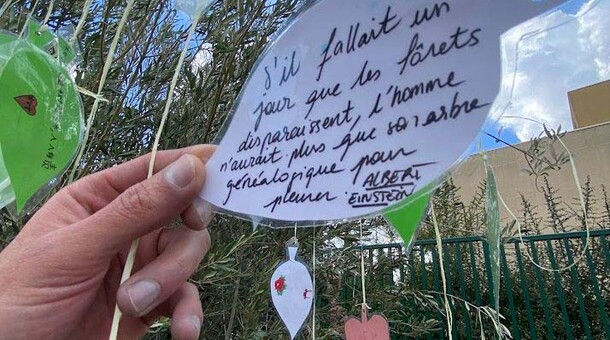 S'il fallait un
jour que les fôrets
disparaissent, l'homme
n'aurait plus que son arbre
généalogique pour
pleurer. ALBERT
EINSTEIN